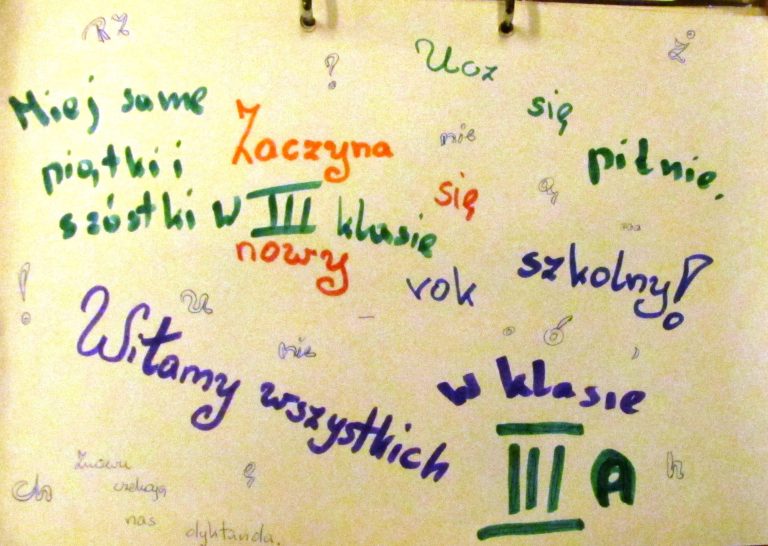 RZ
Ż
!
Ucz się pilnie.
Miej same
piątki i
szóstki w III klasie
Zaczyna
się
nowy
rok
szkolny!
nie
!
u
nie
ó
Witamy wszystkich
w klasie
III A
ch
h
ę
Znowu
czekają
nas
dyktanda.